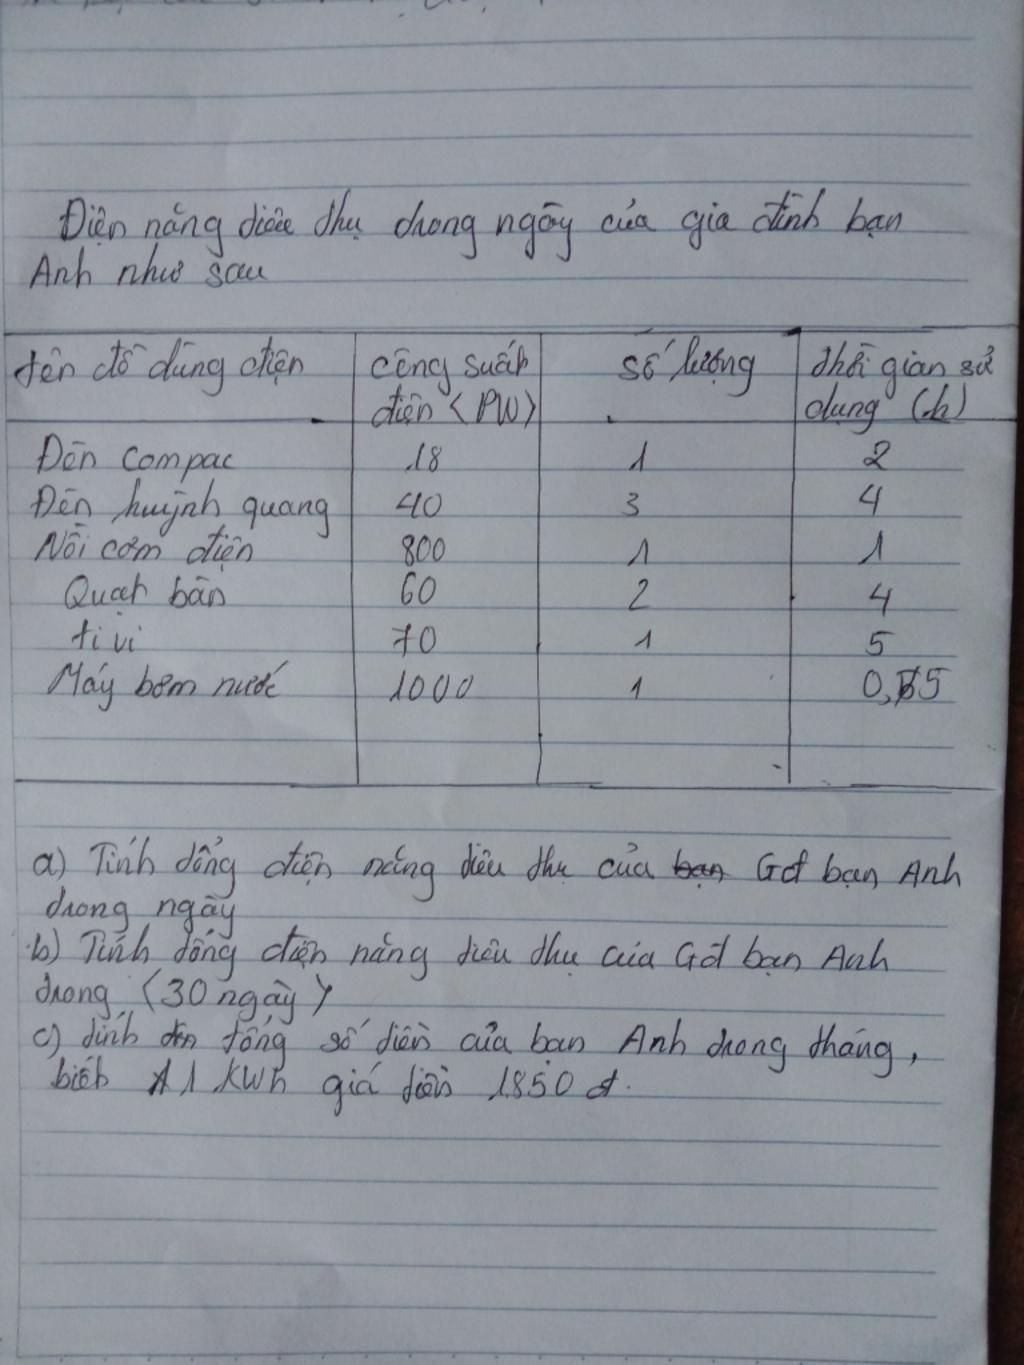 Điện năng tiêu thụ trong ngày của gia đình bạn
Anh như sau
tên đồ dùng điện công suất điện (PW) số lượng thời gian sử dụng (h)
Đèn compac 18 1 2
Đèn huỳnh quang 40 3 4
Nồi cơm điện 800 1 1
Quạt bàn 60 2 4
ti vi 70 1 5
Máy bơm nước 1000 1 0,5
a) Tính tổng điện năng tiêu thụ của Gđ bạn Anh
trong ngày
b) Tính tổng điện năng tiêu thụ của Gđ bạn Anh
trong (30 ngày)
c) tính tổng số tiền của bạn Anh trong tháng,
biết 1 KWh giá tiền 1850 đ.